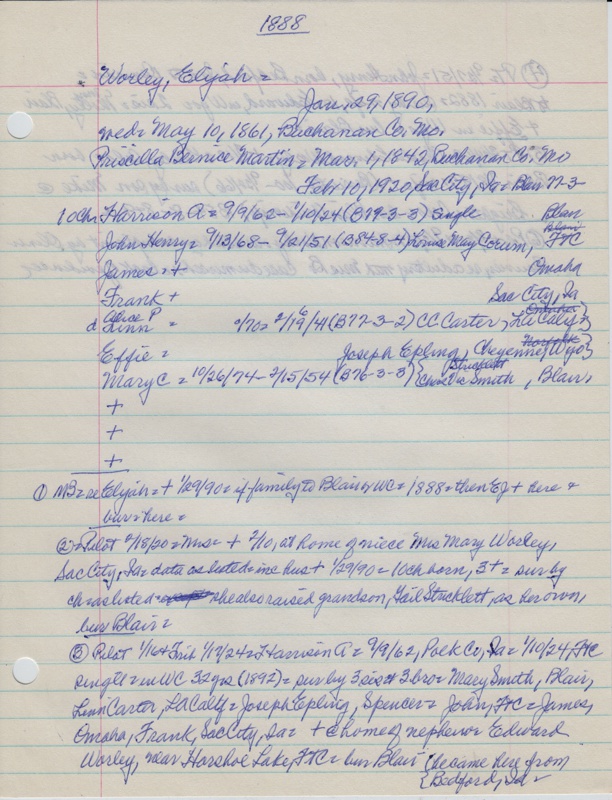 1888
Worley, Elijah =
Jan. 29, 1890,
wed = May 10, 1861, Buchanan Co. Mo.
Priscilla Bernice Martin = Mar. 1, 1842, Buchanan Co. Mo
Feb. 10, 1920, Sac City, Ia = Blair 77-3-
10 Ch. Harrison A = 9/9/62 - 1/10/24 (B79-3-3) Single Blair
John Henry = 9/13/68 - 9/21/51 (B848-4) May Corum, FTC
James = + Omaha
Frank + Sac City, Ia
d Alice P
Linn = 2/19/41 (B77-3-2) CC Carter, LA Calif
Effie = Joseph Epling, Cheyenne, Wyo
Mary C = 10/26/74 - 2/15/54 (B76-3-3) Smith, Blair,
+
+
+
① MB = re Elijah = + 1/29/90 = if family to Blair, WC = 1888 = then EJ + here &
bur = here =
② = Pilot 2/18/20 = Mrs = + 2/10, at home of niece Mrs Mary Worley,
Sac City, Ia = data as listed = inc hus + 1/29/90 = 10 ch born, 3 + = sur by
ch = as listed = she also raised grandson, Gail Stricklett, as her own,
bur Blair =
③ Pilot 1/16 & Trib 1/17/24 = Harrison A = 9/9/62, Polk Co, Ia = 1/10/24, FTC
single = in WC 32 yrs (1892) = sur by 3 sis & 3 bro = Mary Smith, Blair,
Linn Carter, LA Calif = Joseph Epling, Spencer = John, FTC = James,
Omaha, Frank, Sac City, Ia = + @ home of nephew = Edward
Worley, near Horshoe Lake, FTC = bur Blair (became here from
Bedford, Ia =